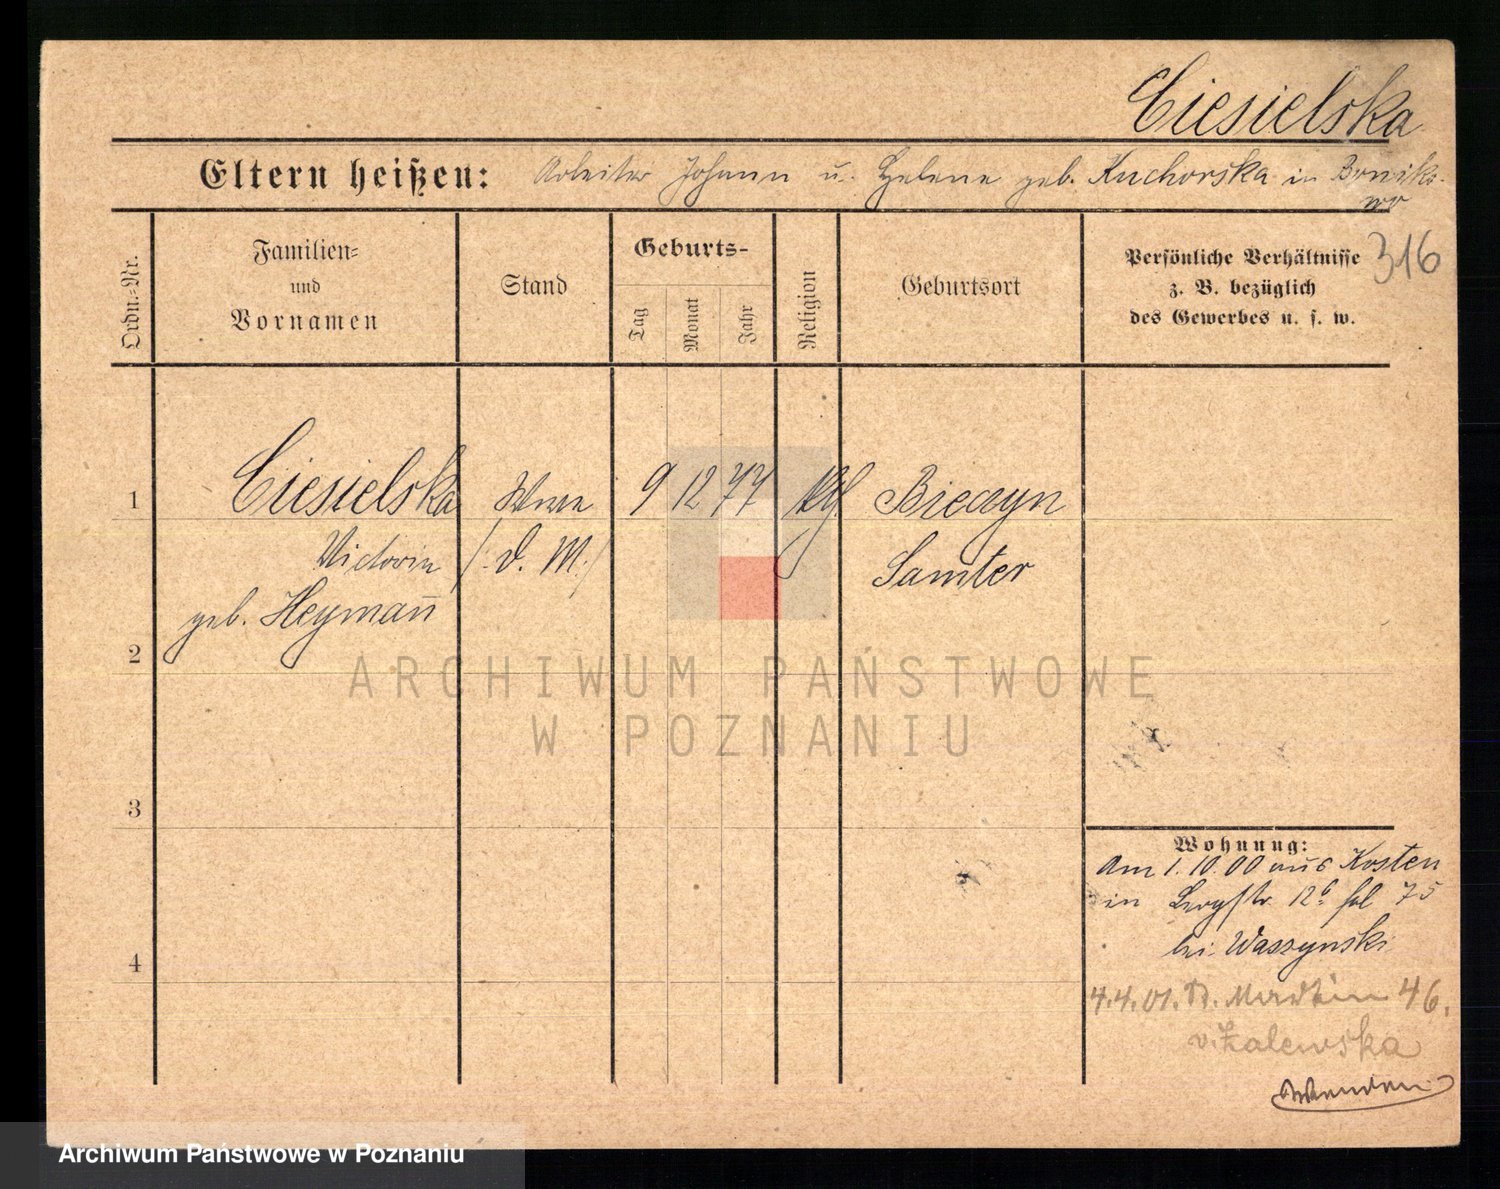 Ciesielska
Eltern heißen: Arbeiter Johann u. Helene geb. Kuchorska in Bonikowo
316
Ordn.-Nr.
Familien-
und
Vornamen
Stand
Geburts-
Tag
Monat
Jahr
Religion
Geburtsort
Persönliche Verhältnisse
z. B. bezüglich
des Gewerbes u. s. w.
1 Ciesielska Wwe 9 12 77 kth.
Victoria /: d. M :/ Samter
geb. Heymañ
2
ARCHIWUM PAŃSTWOWE
W POZNANIU
3
Wohnung:
Am 1. 10. 00 aus Kosten
in Bergstr. 12b fol 75
bei Waszynski
4
4.4.01. St. Martin 46.
v. Zalewska
Wenden
Archiwum Państwowe w Poznaniu